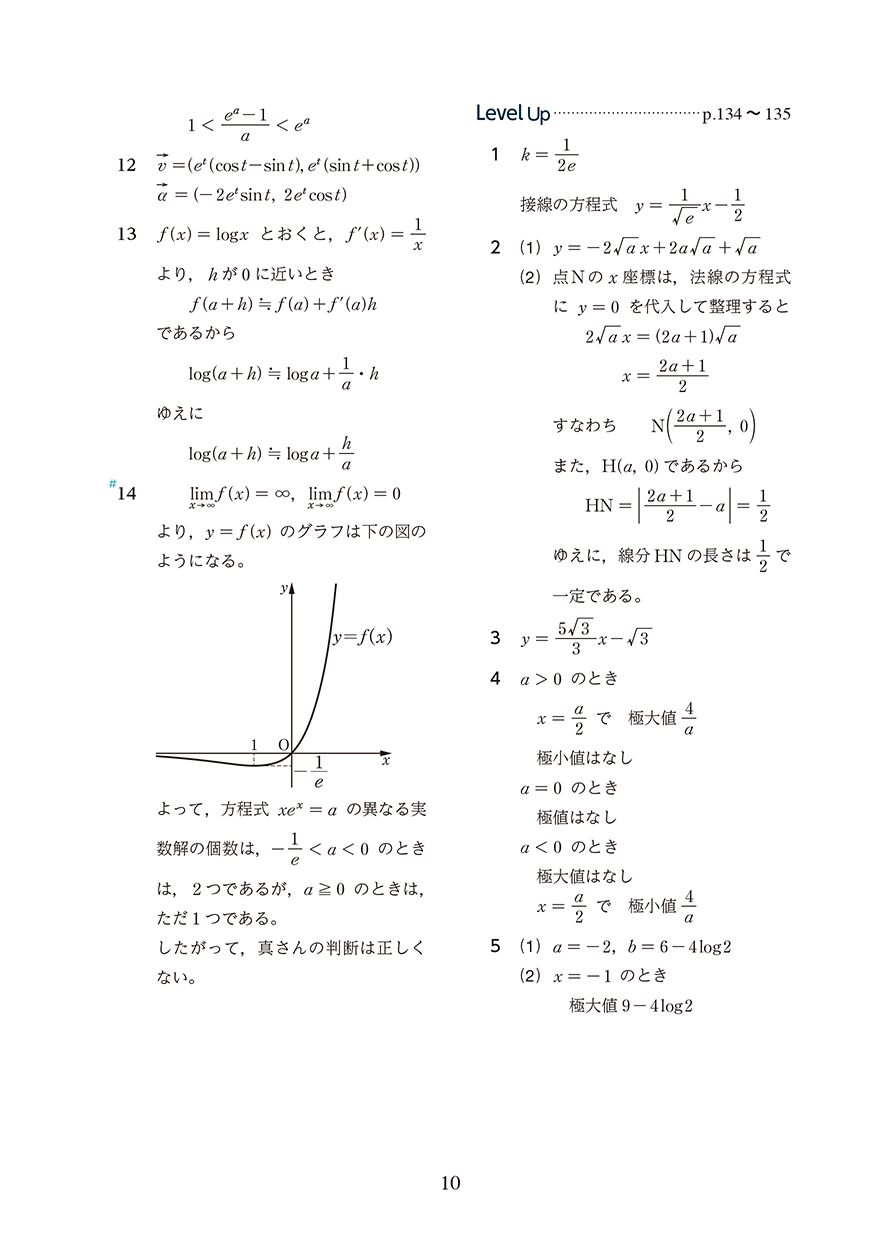 1 < (e^a − 1)/a < e^a
12 v⃗ =(e^t(cos t−sin t), e^t(sin t+cos t))
α⃗ = (−2e^t sin t, 2e^t cos t)
13 f(x) = log x とおくと，f′(x) = 1/x
より，h が 0 に近いとき
f(a+h)≒f(a)+f′(a)h
であるから
log(a+h)≒log a+1/a・h
ゆえに
log(a+h)≒log a+h/a
#14 lim_{x→∞} f(x) = ∞，lim_{x→∞} f(x) = 0
より，y = f(x) のグラフは下の図の
ようになる。
y
y=f(x)
1 O x
−1/e
よって，方程式 xe^x = a の異なる実
数解の個数は，−1/e < a < 0 のとき
は，2つであるが，a ≧ 0 のときは，
ただ1つである。
したがって，真さんの判断は正しく
ない。
Level Up ………………………… p.134 〜 135
1 k = 1/(2e)
接線の方程式 y = (1/√e)x−1/2
2 (1) y = −2√a x+2a√a+√a
(2) 点Nの x 座標は，法線の方程式
に y = 0 を代入して整理すると
2√a x = (2a+1)√a
x = (2a+1)/2
すなわち N((2a+1)/2, 0)
また，H(a, 0)であるから
HN = |(2a+1)/2−a| = 1/2
ゆえに，線分 HN の長さは 1/2 で
一定である。
3 y = (5√3/3)x−√3
4 a > 0 のとき
x = a/2 で 極大値 4/a
極小値はなし
a = 0 のとき
極値はなし
a < 0 のとき
極大値はなし
x = a/2 で 極小値 4/a
5 (1) a = −2，b = 6−4log2
(2) x = −1 のとき
極大値 9−4log2
10